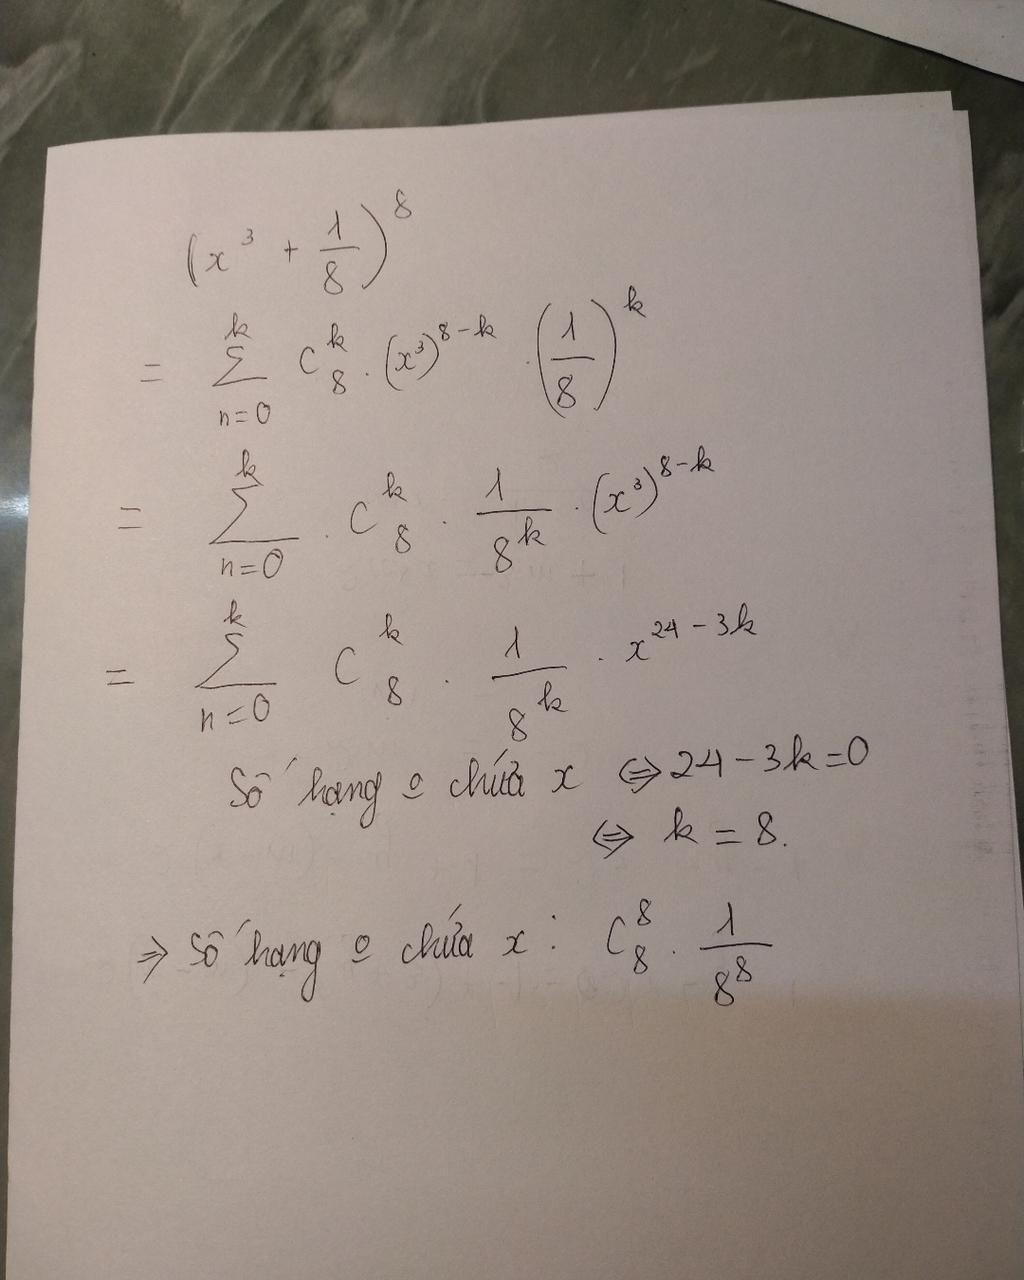 (x³ + 1/8)⁸
= Σ_{n=0}^{k} C_8^k . (x³)^{8-k} . (1/8)^k
= Σ_{n=0}^{k} . C_8^k . 1/8^k . (x³)^{8-k}
= Σ_{n=0}^{k} C_8^k . 1/8^k . x^{24-3k}
Số hạng o chứa x ⇔ 24 - 3k = 0
⇔ k = 8.
⇒ Số hạng o chứa x : C_8^8 . 1/8^8